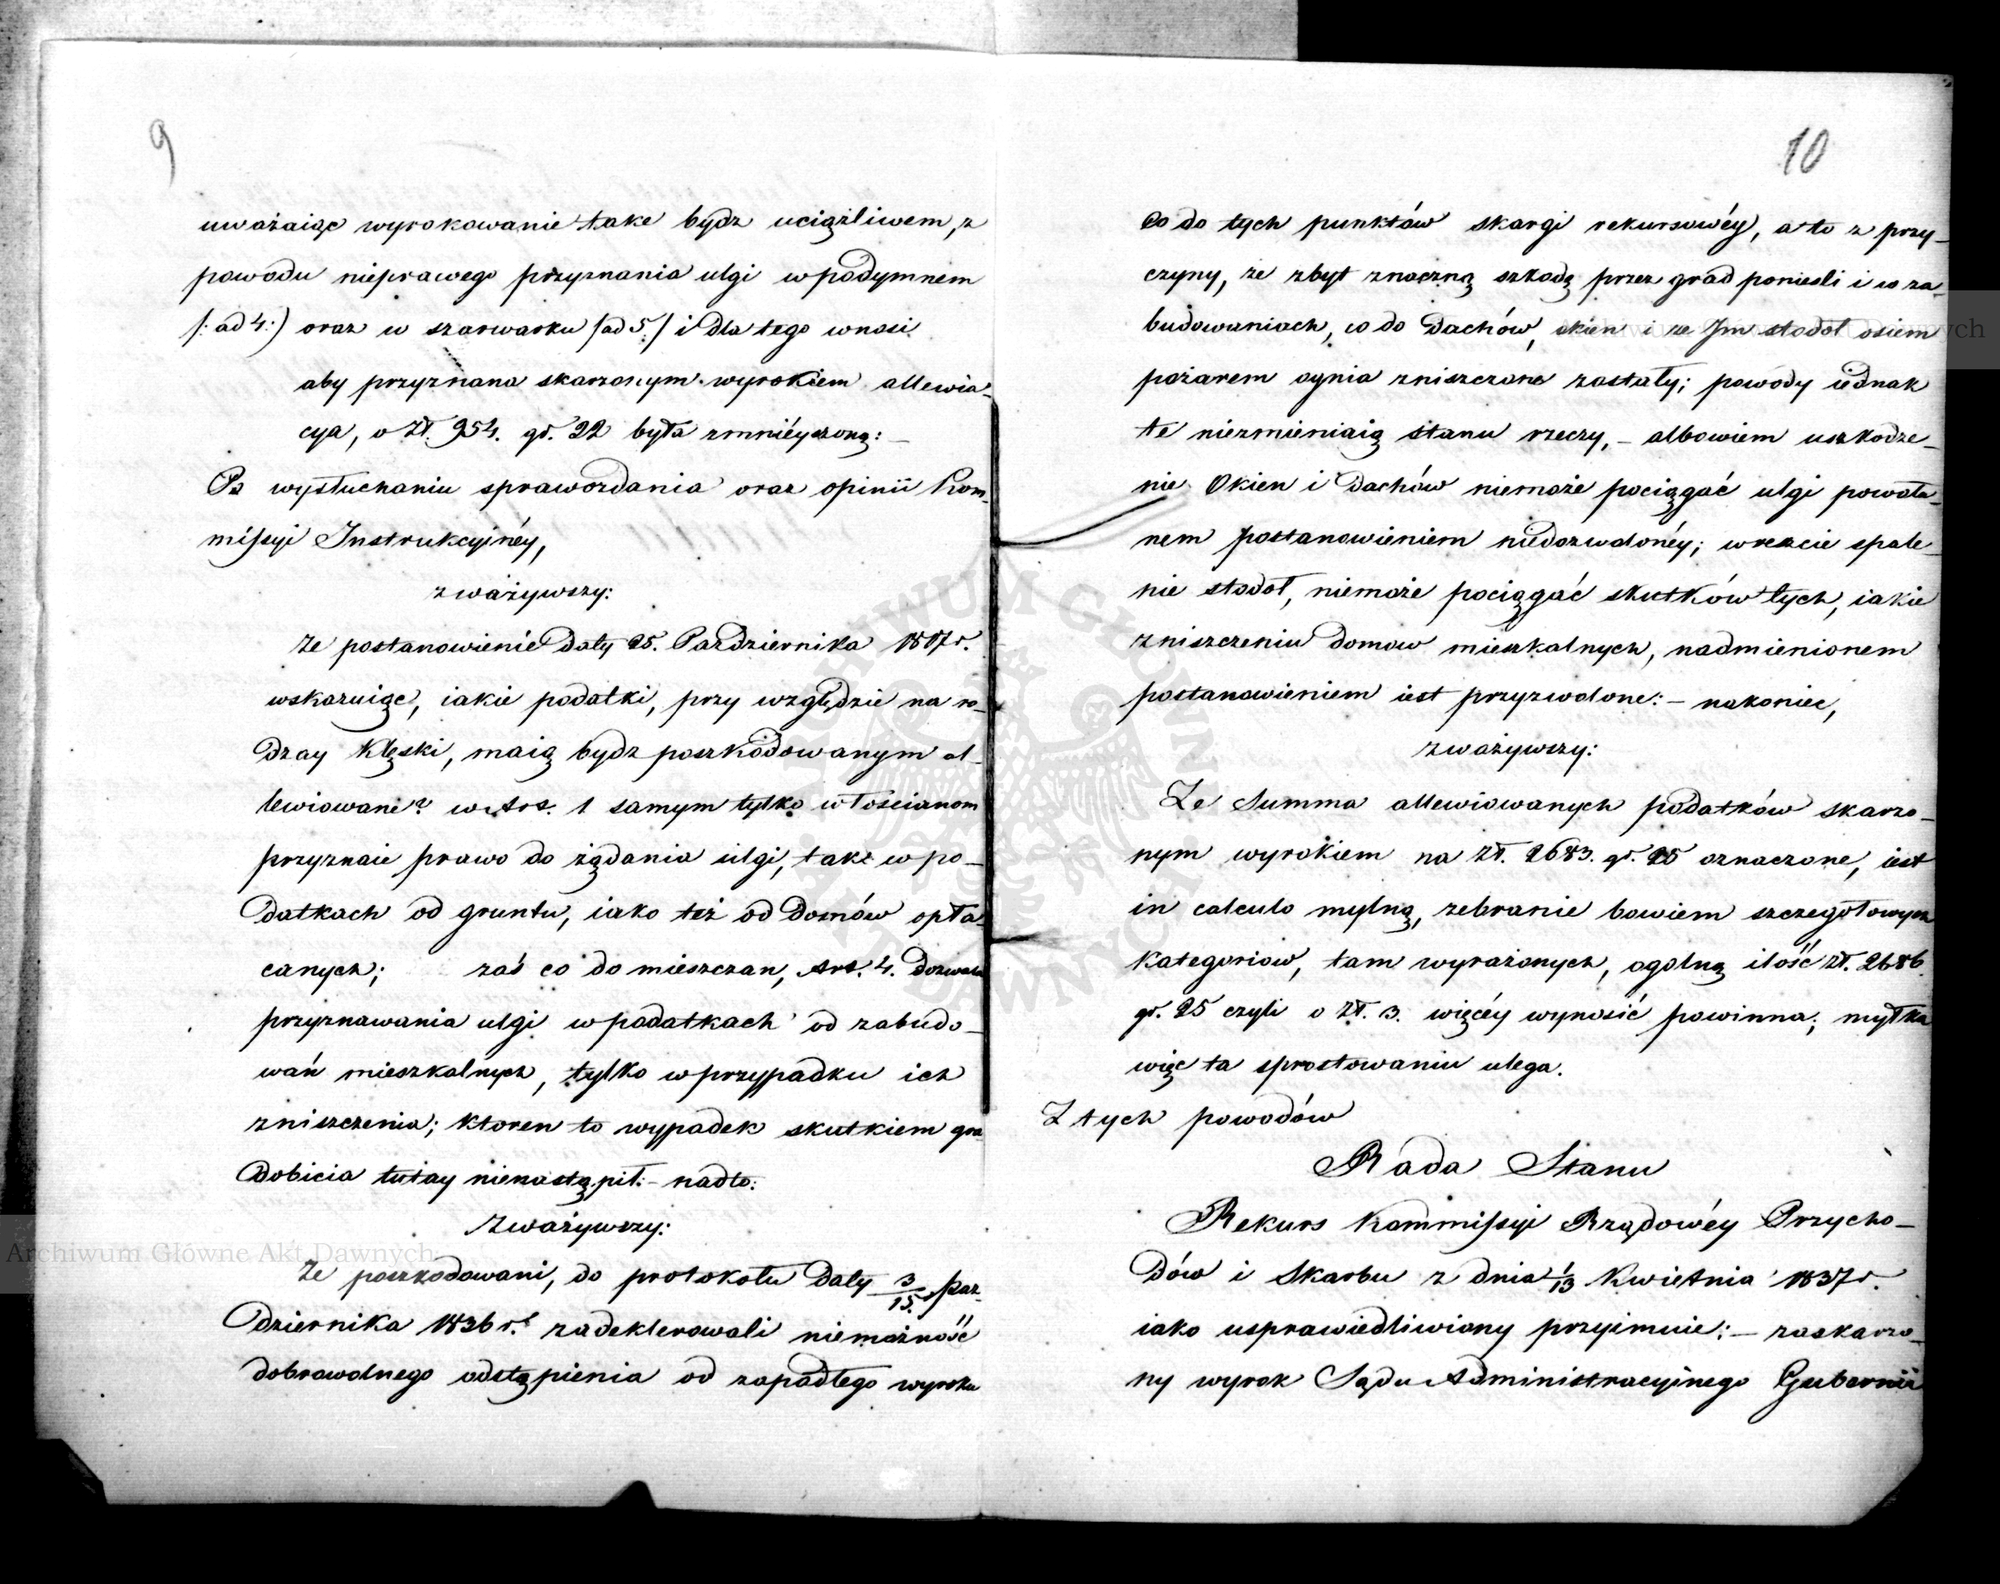 9
uważaiąc wyrokowanie take bydz uciążliwem, z
powodu nieprawego przyznania ulgi w podymnem
/: ad 4:) oraz w szarwarku /ad 5./ i dla tego wnosi
aby przyznana skarzonym wyrokiem allewia-
cya, o Zł. 954. gr. 22 była zmnieyszoną: –
Po wysłuchaniu sprawozdania oraz opinii Kom-
missyi Instrukcyinéy,
zważywszy:
że postanowienie daty 25. Pazdziernika 1817 r.
wskazuiąc, iakie podatki, przy względzie na ro-
dzay klęski, maią bydz poszkodowanym al-
lewiowane? w Art. 1 samym tylko włościanom
przyznaie prawo do żądania ulgi, tak w po-
datkach od gruntu, iako też od domów opła-
canych; zaś co do mieszczan, Art. 4. dozwala
przyznawania ulgi w podatkach od zabudo-
wań mieszkalnych, tylko w przypadku ich
zniszczenia; ktoren to wypadek skutkiem gra
dobicia tutay nienastąpił: – nadto:
Zważywszy:
że poszkodowani, do protokołu daty 3/15. Paz-
dziernika 1836 r. zadeklerowali niemożność
dobrowolnego odstąpienia od zapadłego wyroku
10
co do tych punktów skargi rekursowéy, a to z przy-
czyny, że zbyt znaczną szkodę przez grad ponieśli i w za-
budowaniach, co do dachów, okien i że Im stodoł osiem
pożarem ognia zniszczone zostały; powody iednak
te niezmieniaią stanu rzeczy, – albowiem uszkodze-
nie Okien i dachów niemoże pociągać ulgi powoła-
nem postanowieniem niedozwolonéy; wreszcie spale-
nie stodoł, niemoże pociągać skutków tych, iakie
zniszczeniu domow mieszkalnych, nadmienionem
postanowieniem iest przyzwolone: – nakoniec,
zważywszy:
Że Summa allewiowanych podatków skarzo-
nym wyrokiem na Zł. 2683. gr. 25 oznaczone, iest
in calculo mylną, zebranie bowiem szczegołowych
kategoriow, tam wyrażonych, ogolną ilość zł. 2686.
gr. 25 czyli o Zł. 3. więcéy wynosić powinna; myłka
więc ta sprostowaniu ulega.
Z tych powodów
Rada Stanu
Rekurs Kommissyi Rządowéy Przycho-
dów i Skarbu z dnia 1/13 Kwietnia 1837 r.
iako usprawiedliwiony przyimuie: – zaskarzo-
ny wyrok Sądu Administracyinego Gubernii
Archiwum Główne Akt Dawnych